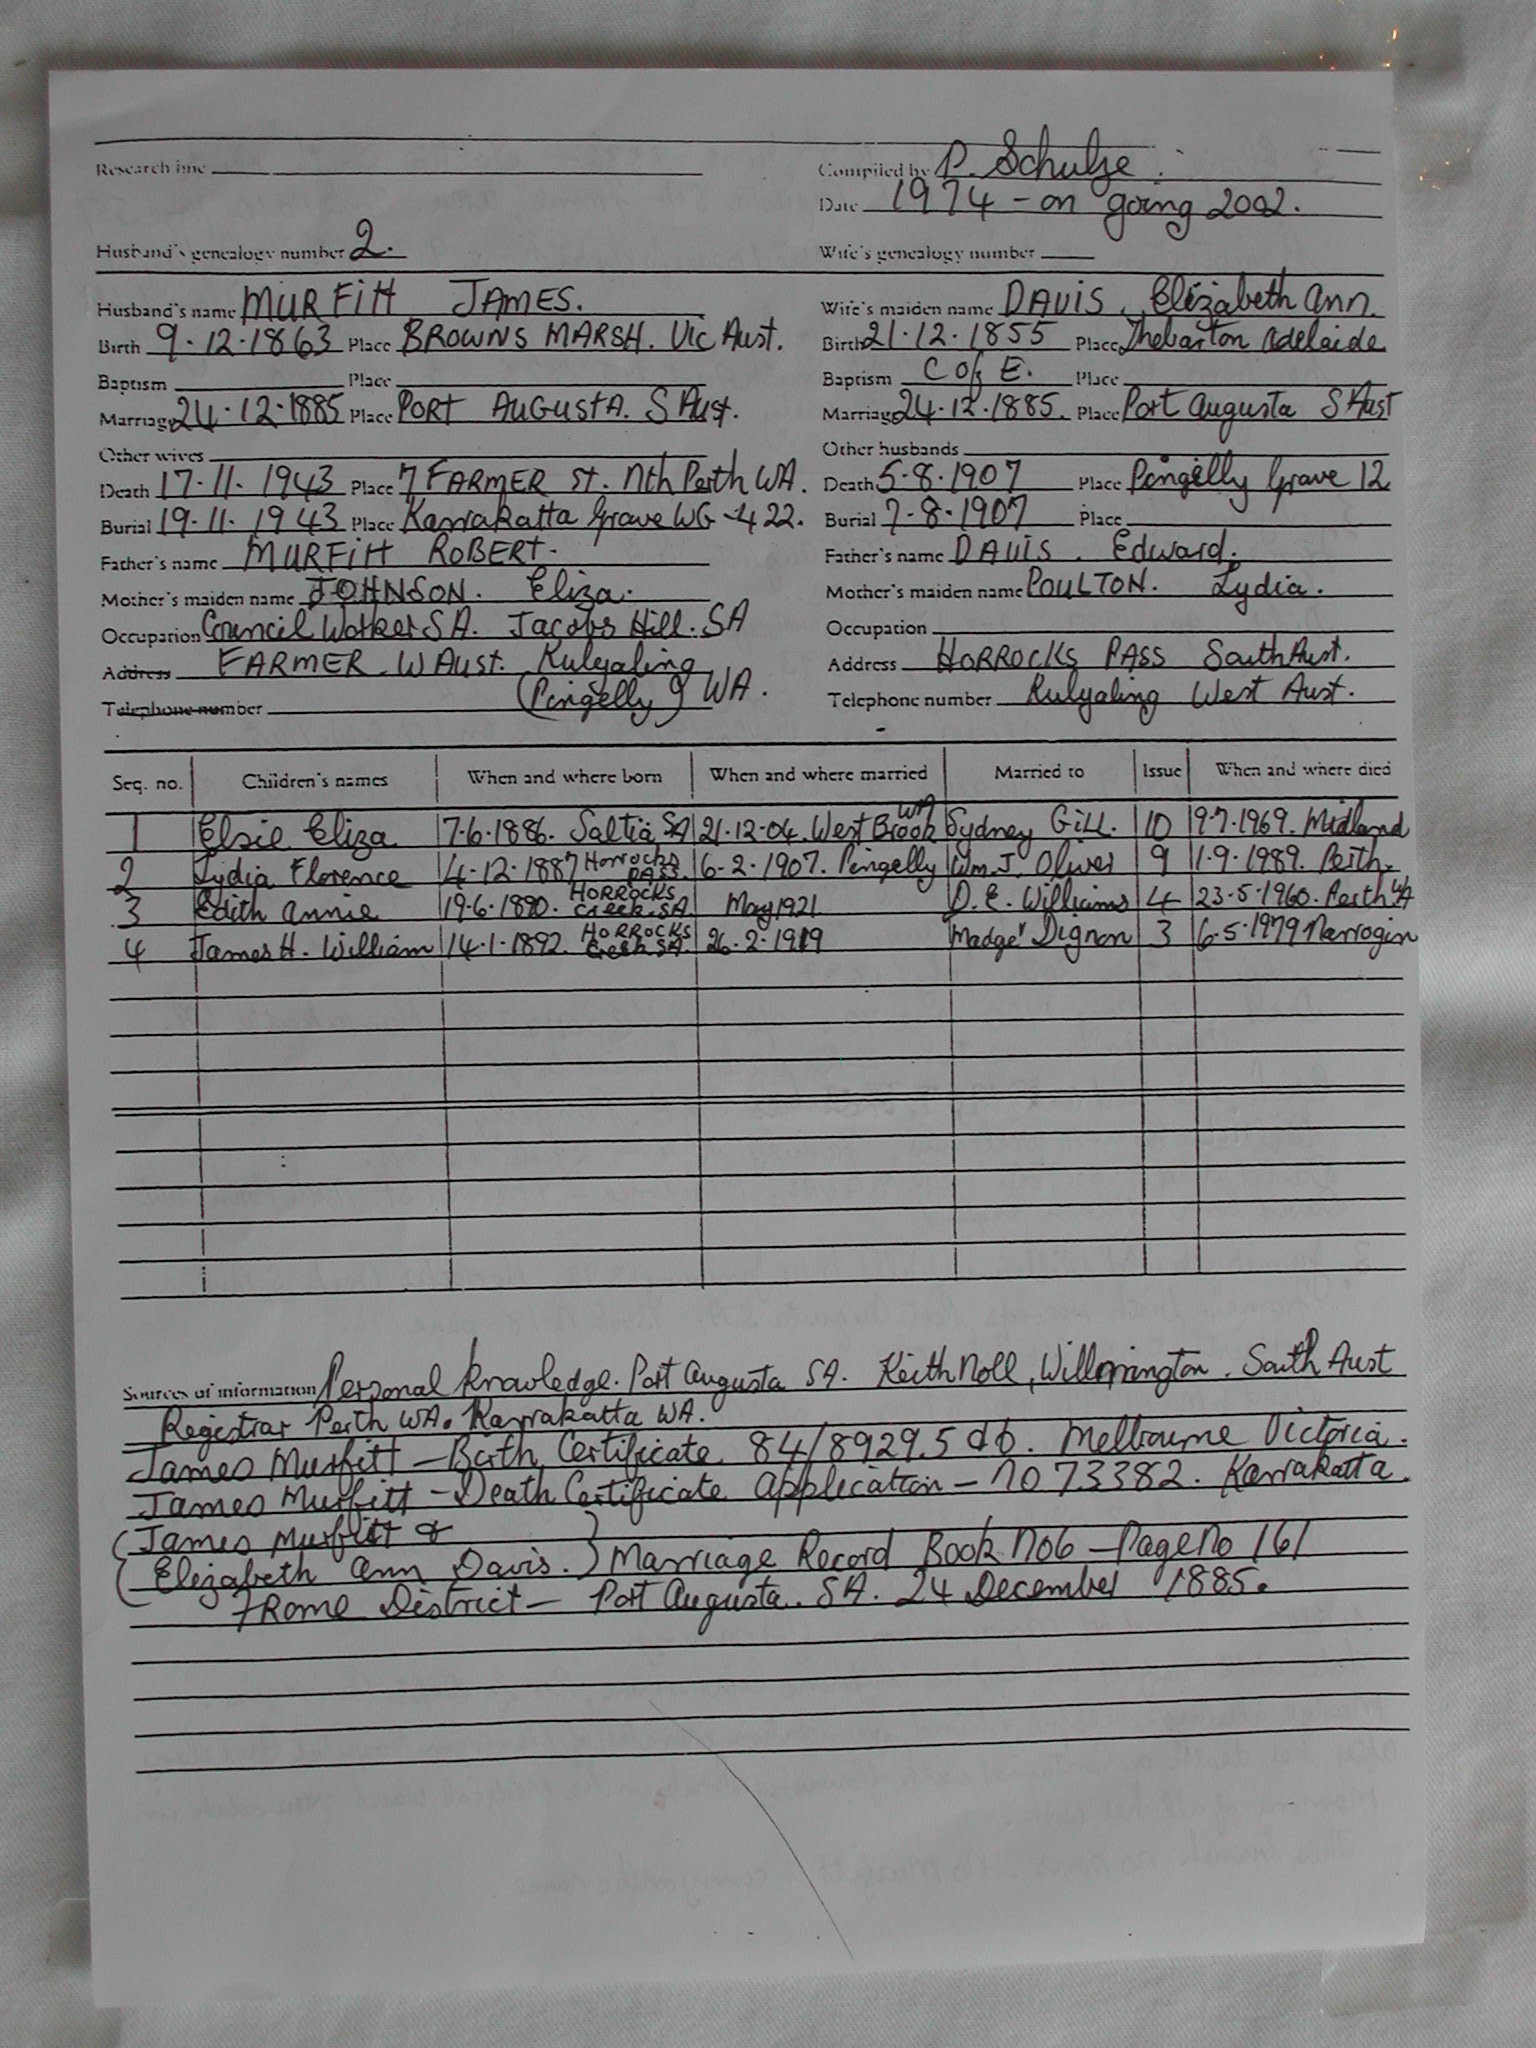 Research line
Compiled by P. Schulze.
Date 1974 - on going 2002.
Husband's genealogy number 2.
Wife's genealogy number
Husband's name MURFITT JAMES.
Wife's maiden name DAVIS. Elizabeth Ann.
Birth 9.12.1863 Place BROWNS MARSH. Vic Aust.
Birth 21.12.1855 Place Thebarton Adelaide
Baptism Place
Baptism C of E. Place
Marriage 24.12.1885 Place PORT AUGUSTA. S Aust.
Marriage 24.12.1885. Place Port Augusta S Aust
Other wives
Other husbands
Death 17.11.1943 Place 7 FARMER St. Nth Perth WA.
Death 5.8.1907 Place Pingelly Grave 12
Burial 19.11.1943 Place Karrakatta Grave WG-422.
Burial 7.8.1907 Place
Father's name MURFITT ROBERT.
Father's name DAVIS. Edward.
Mother's maiden name JOHNSON. Eliza.
Mother's maiden name POULTON. Lydia.
Occupation Council Worker SA. Jacobs Hill. SA
Occupation
Address FARMER. W Aust. Kulyaling
Address HORROCKS PASS South Aust.
Telephone number (Pingelly) WA.
Telephone number Kulyaling West Aust.
Seq. no. Children's names When and where born When and where married Married to Issue When and where died
1 Elsie Eliza 7.6.1886. Saltia SA 21.12.04. West Brook WA Sydney Gill. 10 9.7.1969. Midland
2 Lydia Florence 4.12.1887 Horrocks PASS. 6.2.1907. Pingelly Wm. J. Oliver 9 1.9.1989. Perth.
3 Edith Annie 19.6.1890. HORROCKS Creek. SA. May 1921 D. E. Williams 4 23.5.1960. Perth WA
4 James H. William 14.1.1892. HORROCKS Creek. SA 26.2.1919 'Madge' Dignon 3 6.5.1979 Narrogin
Sources of information Personal knowledge. Port Augusta SA. Keith Noll, Willmington. South Aust
Registrar Perth WA. Karrakatta WA.
James Murfitt - Birth Certificate 84/89295 db. Melbourne Victoria.
James Murfitt - Death Certificate Application - No 73382. Karrakatta.
James Murfitt &
Elizabeth Ann Davis. } Marriage Record Book No 6 - Page No 161
FROME District - Port Augusta. SA. 24 December 1885.